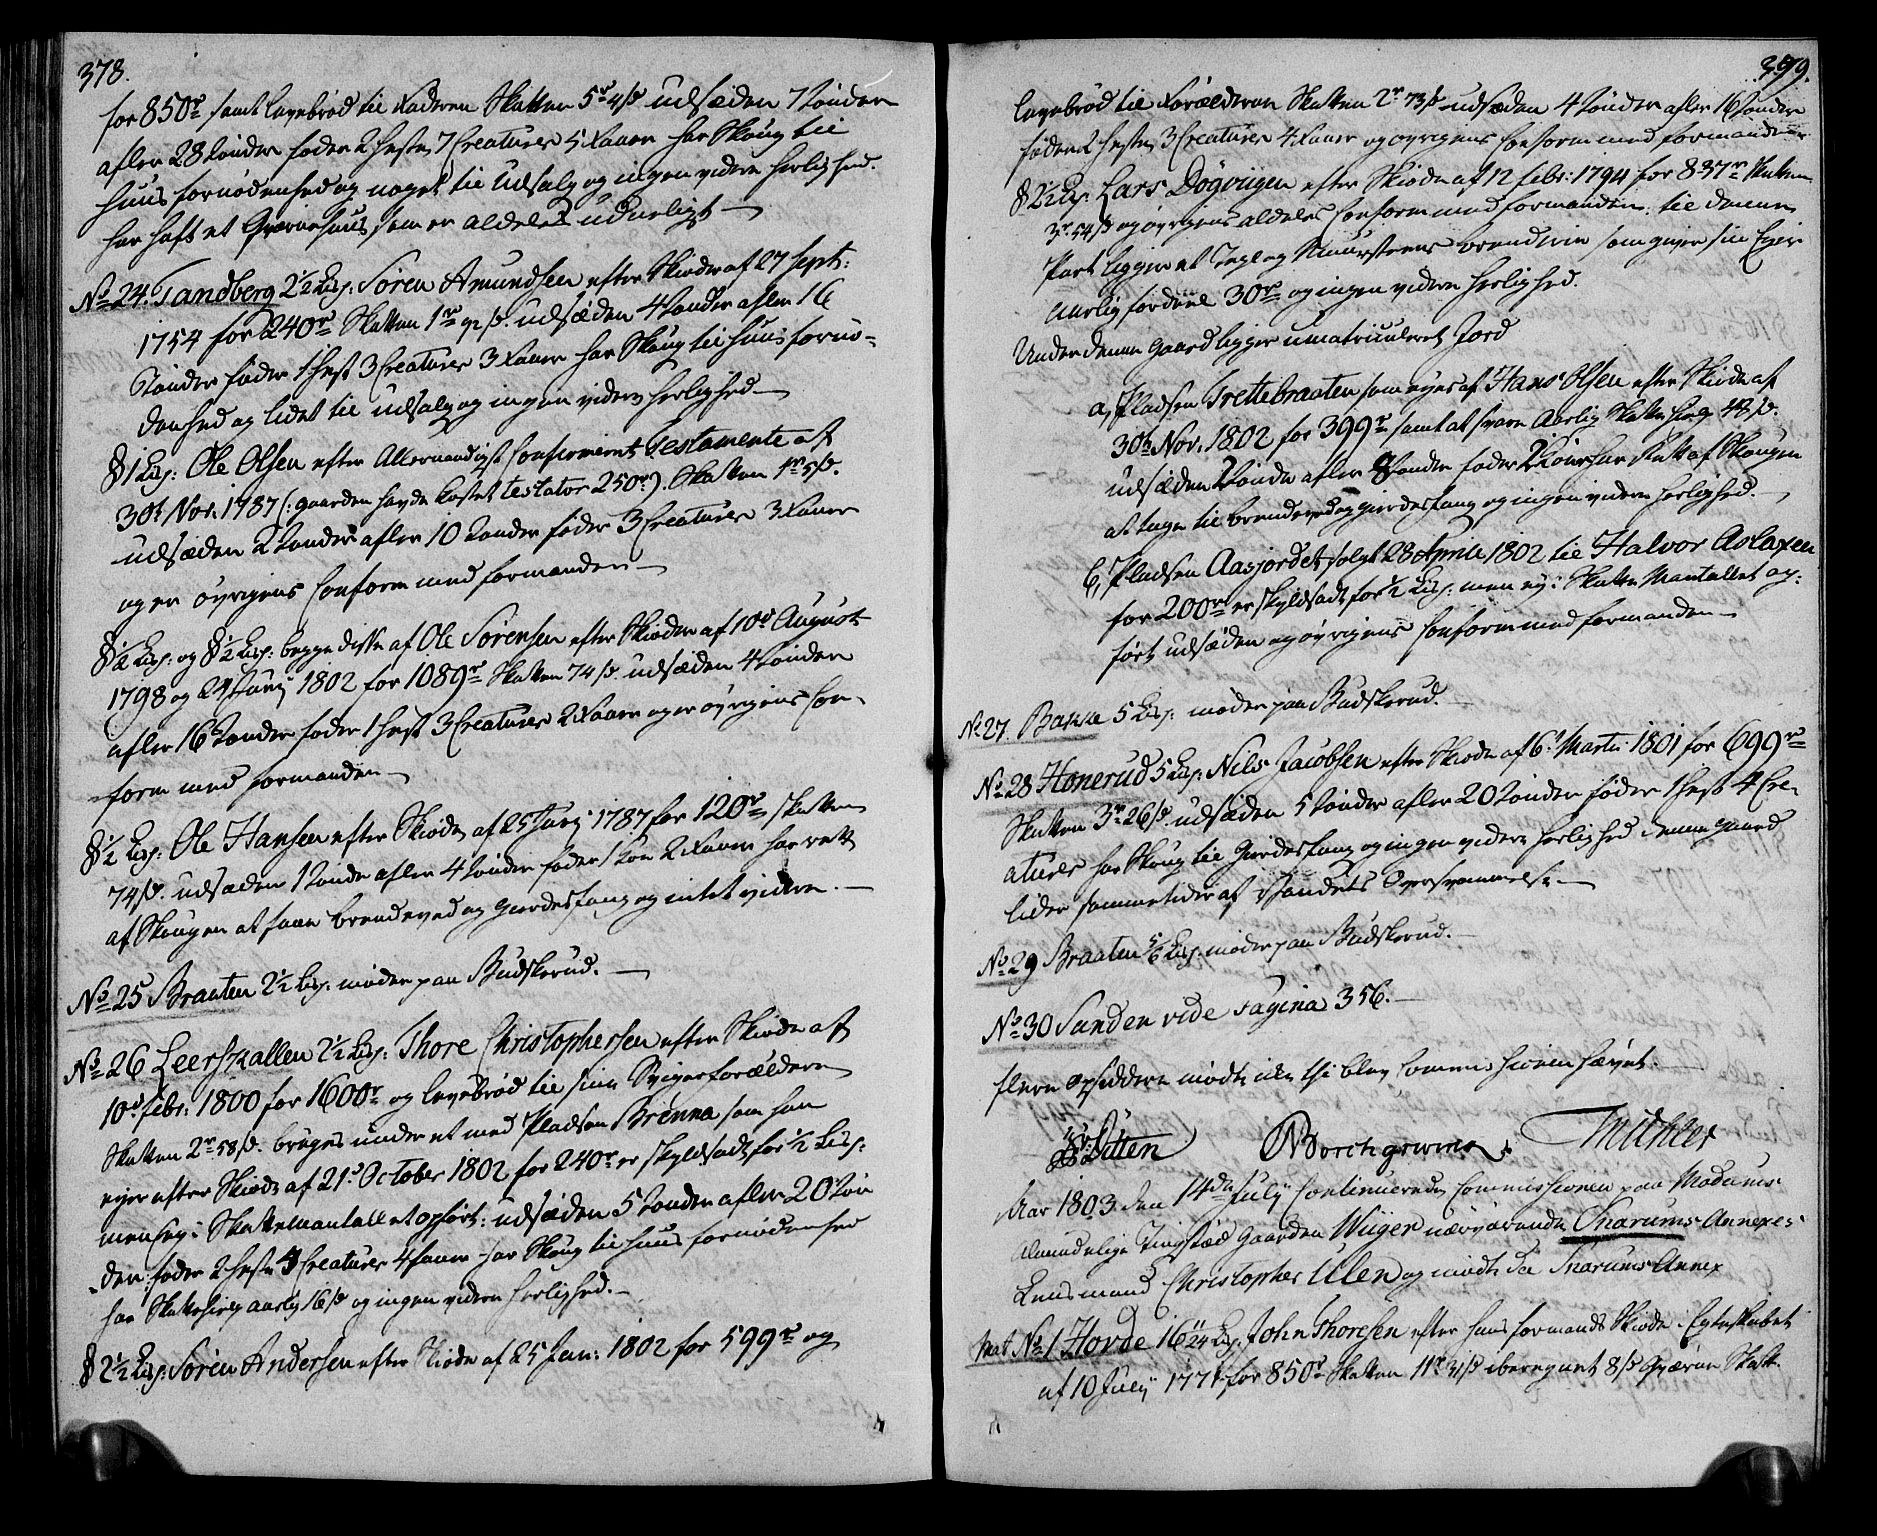 378.
for 850r samt Levebrød til Faderen Skatten 5r 4/s udsæden 7 tønder
afler 28 tønder føder 2 heste 7 Creaturer 5 Faaer har Skoug til
huus fornødenhed og noget til Udsalg og ingen videre herlighed.
har haft et Qværnehuus som er aldeles udueligt —
No 24. Tandberg 2½ Lisp: Sören Amundsen efter Skiøde af 27 Septr:
1754 for 240r Skatten 1r 92/s. udsæden 4 tønder afler 16
tønder føder 1 hest 3 Creaturer 3 Faaer har Skoug til huus fornø-
denhed og lidet til udsalg og ingen videre herlighed —
§ 1 Lisp: Ole Olsen efter Allernaadigst Confirmeret Testamente af
30t Nov. 1787 (: gaarden havde kostet testator 250r). Skatten 1r 5/s.
udsæden 2 tønder afler 10 tønder føder 3 Creaturer 3 Faaer
og er øvrigens Conform med formanden —
§ ½ Lisp: og § ½ Lisp: begge disse af Ole Sörensen efter Skiøder af 10d August
1798 og 24 Junij 1802 for 1089r Skatten 74/s. udsæden 4 tønder
afler 16 tønder føder 1 hest 3 Creaturer 2 Faaer og er øvrigens Con-
form med formanden —
§ ½ Lisp: Ole Hansen efter Skiøde af 25 Junij 1787 for 120r Skatten
74/s. udsæden 1 tønde afler 4 tønder føder 1 Koe 2 Faaer har ret
af Skougen at faae brendeved og gierdesfang og intet videre. —
No 25 Braaten 2½ Lisp: møder paa Budskerud. —
No 26 Leerskallen 2½ Lisp: Thore Christophersen efter Skiøde af
10d febr: 1800 for 1600r og levebrød til sine Svigerforældere
Skatten 2r 58/s. bruges under et med Pladsen Brenna som han
ejer efter Skiøde af 21d October 1802 for 240r er skyldsadt for ½ Lisp:
men ey i Skattemantallet opført: udsæden 5 tønder afler 20 tøn
der føder 2 heste 4 Creaturer 4 faaer har Skoug til huus fornødenhed
har Skattehielp aarlig 16/s og ingen videre herlighed. —
§ 2½ Lisp: Sören Andersen efter Skiøde af 25 Jan: 1802 for 599r og
399.
levebrød til Forældrene Skatten 2r 73/s udsæden 4 tønder afler 16 tønder
føder 2 heste 3 Creaturer 4 Faaer og øvrigens Conform med formanden
§ 2½ Lisp: Lars Døgvigen efter Skiøde af 12 febr: 1794 for 837r Skatten
3r 54/s og øvrigens aldeles Conform med formanden. til denne
Part ligger et Tegl og Muursteens brænderie som giver sin Ejer
aarlig fordeel 30r og ingen videre herlighed.
Under denne gaard ligger umatriculeret Jord
a, Pladsen Trettebraaten som eyes af Hans Olsen efter Skiøde af
30t Nov. 1802 for 399r samt at svare Aarlig Skattehielp 48/s.
udsæden 2 tønder afler 8 tønder føder 2 Kiør har Ret af Skougen
at tage til brendeved og gierdesfang og ingen videre herlighed. —
b, Pladsen Aasjordet solgt 28 Aprile 1802 til Halvor Aslaxen
for 200r er skyldsadt for ½ Lisp: men ey i Skatte Mantallet op-
ført udsæden og øvrigens Conform med formanden —
No 27. Bakke 5 Lisp: møder paa Budskerud.
No 28 Honerud 5 Lisp: Nils Jacobsen efter Skiøde af 6t Martii 1801 for 699r
Skatten 3r 26/s. udsæden 5 tønder afler 20 tønder føder 1 hest 4 Cre-
aturer har Skoug til Gierdesfang og ingen videre herlighed denne gaard
lider sommetider af Vandets Oversvømmelse —
No 29 Braaten 5/6 Lisp: møder paa Budskerud. —
No 30 Sanden vide Pagina 356. —
flere Opsiddere mødte ikke thi blev Commissionen hævet. —
Bitten Borchgrevink Michlet
Aar 1803 den 14de July Continuerede Commissionen paa Modums
Almindelige Tingstæd Gaarden Wiiger nærværende Snarums Annexes
Lensmand Christopher Ulen og mødte da Snarums Annex
Mat No 1 Hovde 16 11/24 Lisp. John Thoresen efter hans formands Skiøde i Egteskabet
af 10 July 1771 for 850r Skatten 11r 31/s iberegnet 8/s Qværne Skatt.